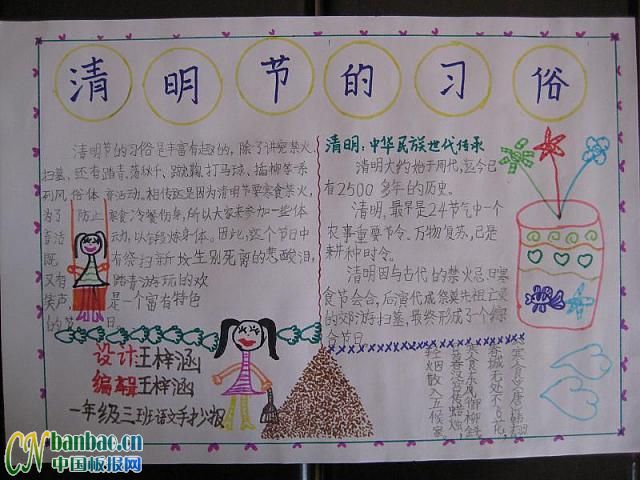 清明节的习俗
清明节的习俗是丰富有趣的，除了讲究禁火
扫墓，还有踏青、荡秋千、蹴鞠、打马球、插柳等系
列风俗体育活动。相传这是因为清明节要寒食禁火，
为了防止寒食冷餐伤身，所以大家来参加一些体
育活动，以锻炼身体。因此，这个节日中
既有祭扫新坟生别死离的悲酸泪，
又有踏青游玩的欢
笑声，是一个富有特色
的节日。
设计：王梓涵
编辑：王梓涵
一年级三班语文手抄报
清明：中华民族世代传承
清明大约始于周代，迄今已
有2500多年的历史。
清明，最早是24节气中一个
农事重要节令、万物复苏，已是
耕种时令。
清明因与古代的禁火忌日寒
食节会合，后演代成祭奠先祖上坟
的交际游扫墓，最终形成了个综
合节日
寒食 唐 韩翃
春城无处不飞花，
寒食东风御柳斜
日暮汉宫传蜡烛，
轻烟散入五侯家
CN banbao.cn
中国板报网